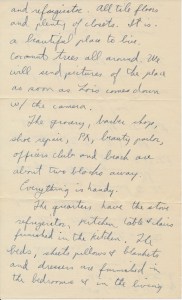 and refrigerator. All tile floors
and plenty of closets. It is
a beautiful place to live.
Coconut trees all around. We
will send pictures of the place
as soon as Lois comes down
w/ the camera.
The grocery, barber shop,
shoe repair, PX, beauty parlor,
officers club and beach are
about two blocks away.
Everything is handy.
The quarters have the stove
refrigerator, kitchen table & chairs
furnished in the kitchen. The
beds, sheets pillows & blankets
and dressers are furnished in
the bedrooms & in the living